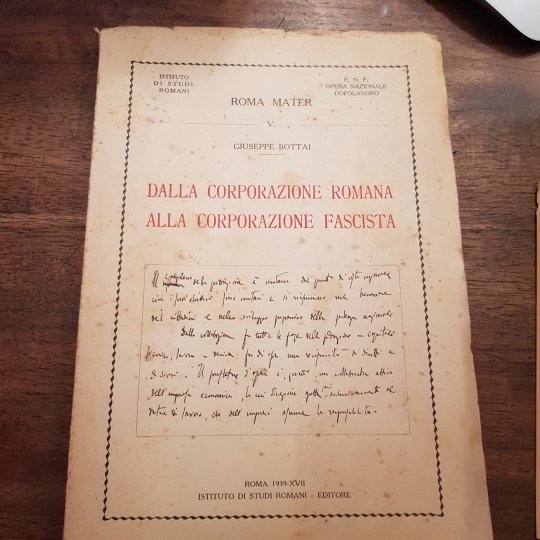 ISTITUTO
DI STUDI
ROMANI
P. N. F.
OPERA NAZIONALE
DOPOLAVORO
ROMA MATER
V.
GIUSEPPE BOTTAI
DALLA CORPORAZIONE ROMANA
ALLA CORPORAZIONE FASCISTA
Il complesso della produzione è unitario dal punto di vista nazionale
i suoi obiettivi sono unitari e si riassumono nel benessere
dei cittadini e nello sviluppo della potenza nazionale
Dalla collaborazione fra tutte le forze della produzione – capitale
tecnica, lavoro – deriva fra di esse una reciprocità di diritti e
di doveri. Il prestatore d'opera è, un collaboratore attivo
dell'impresa economica, la cui direzione spetta, esclusivamente al
datore di lavoro, che dell'impresa assume la responsabilità.
ROMA 1939-XVII
ISTITUTO DI STUDI ROMANI - EDITORE